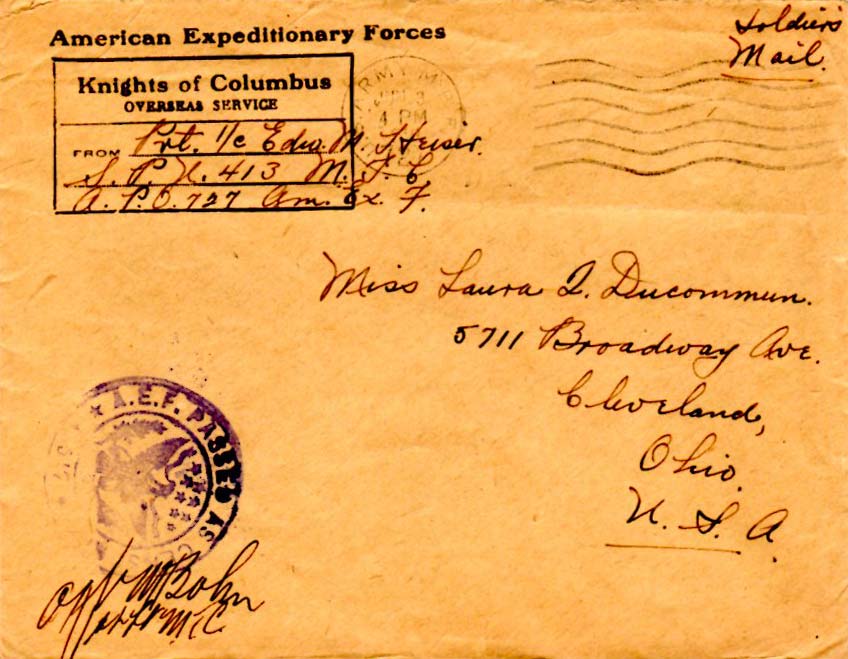 American Expeditionary Forces
Soldier's
Mail.
Knights of Columbus
OVERSEAS SERVICE
FROM Pvt. 1/c Edw. M. Heiser.
S. P. U. 413 M. T. C
A. P. O. 727 Am. Ex. F.
ARMY
3
4 PM
Miss Laura I. Ducommun.
5711 Broadway Ave.
Cleveland,
Ohio
U. S. A.
A.E.F. PASSED AS
Bohn
M.C.